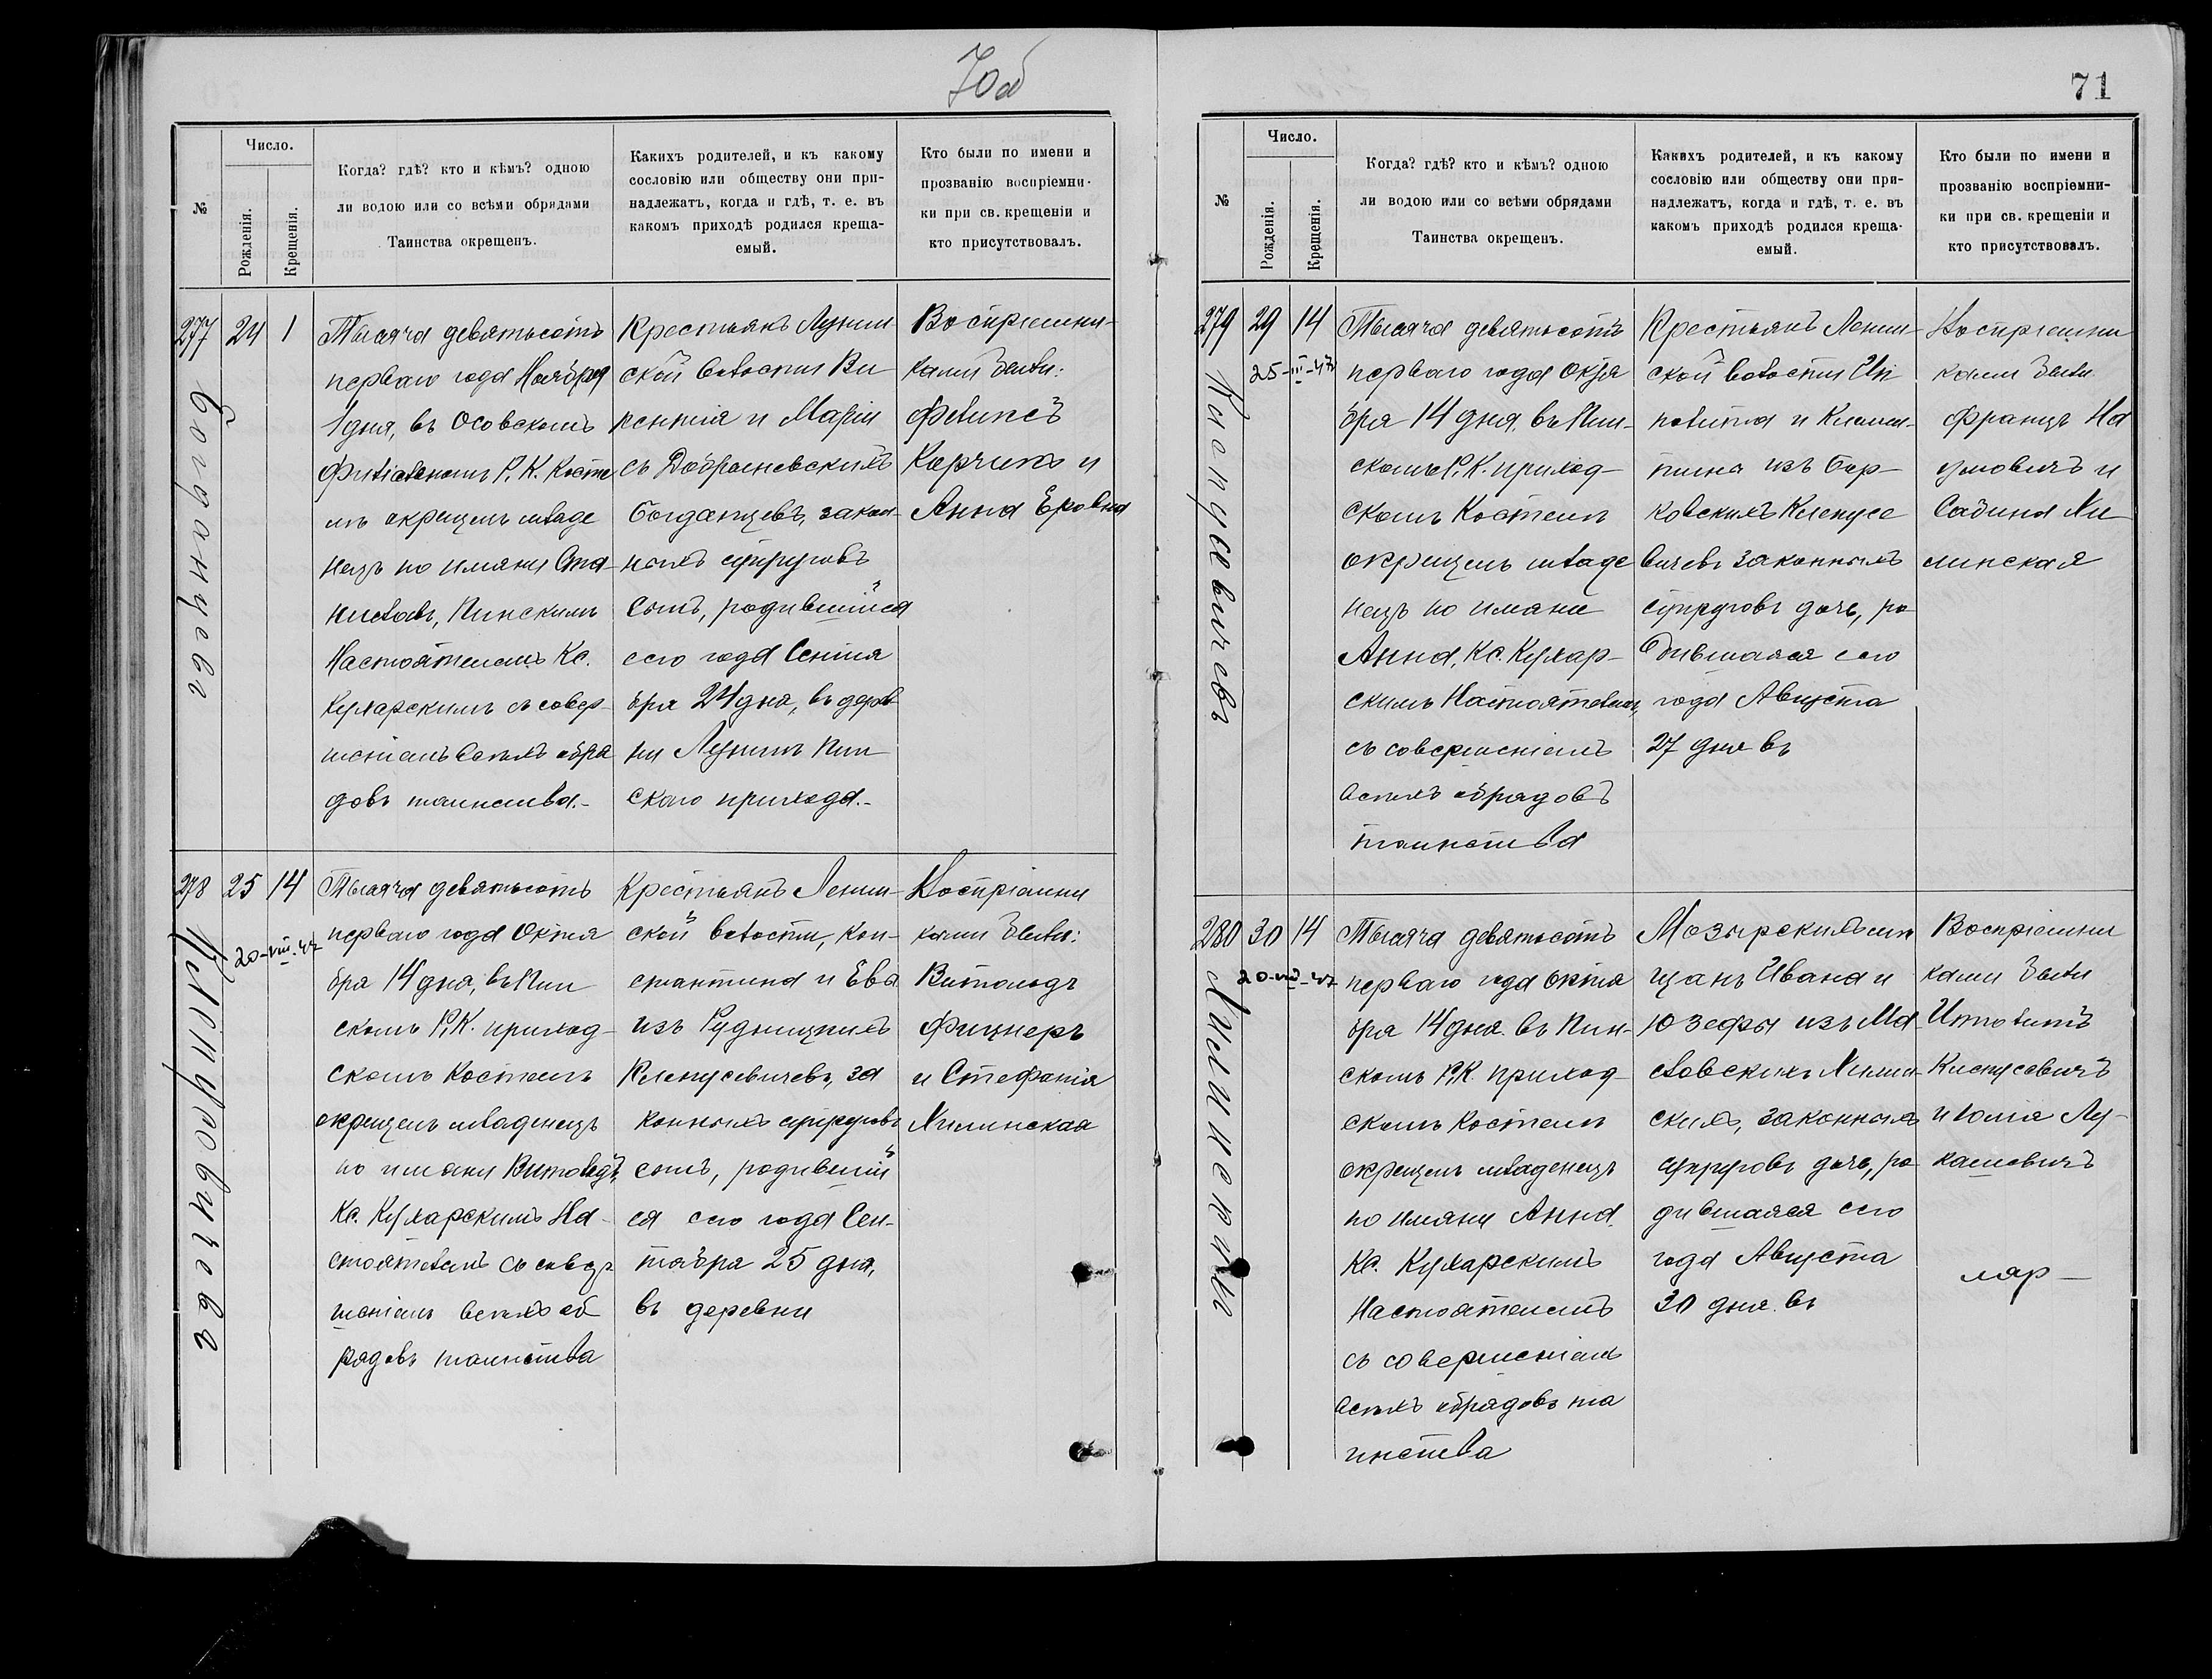 70об
Число.
№
Рожденія.
Крещенія.
Когда? гдѣ? кто и кѣмъ? одною
ли водою или со всѣми обрядами
Таинства окрещенъ.
Какихъ родителей, и къ какому
сословію или обществу они при-
надлежатъ, когда и гдѣ, т. е. въ
какомъ приходѣ родился креща-
емый.
Кто были по имени и
прозванію воспріемни-
ки при св. крещеніи и
кто присутствовалъ.
277
24
1
Тысяча девятьсотъ
перваго года Ноября
1 дня, въ Осовскомъ
Филіальномъ Р. К. Косте
лѣ окрещенъ младе
нецъ по имяни Ста
ниславъ, Пинскимъ
Настоятелемъ Кс.
Кухарскимъ съ совер-
шеніемъ всѣхъ обря
довъ таинства.-
Крестьянъ Лунин
ской волости Ви
кентія и Маріи
съ Добраневскихъ
Богданцевъ, закон-
ныхъ супруговъ
сынъ, родившійся
сего года Сентя
бря 24 дня, въ дерев
ни Лунинъ Пин
скаго прихода.-
Воспріемни-
ками были:
Феликсъ
Карчик и
Анна
278
25
14
20-VIII-47
Тысяча девятьсотъ
перваго года Октя
бря 14 дня, въ Пин
скомъ Р. К. приход-
скомъ Костелѣ
окрещенъ младенецъ
по имяни Витольдъ,
Кс. Кухарскимъ На-
стоятелемъ съ совер
шеніемъ всѣхъ об
рядовъ таинства
Крестьянъ Ленин-
ской волости, Кон-
стантина и Евы
изъ Рудницкихъ
Клепусевичевъ, за
конныхъ супруговъ
сынъ, родивший
ся сего года Сен-
тября 25 дня,
въ деревни
Воспріемни
ками были:
Витольдъ
Фицнеръ
и Стефанія
Хилинская
Богданцевъ
71
Число.
№
Рожденія.
Крещенія.
Когда? гдѣ? кто и кѣмъ? одною
ли водою или со всѣми обрядами
Таинства окрещенъ.
Какихъ родителей, и къ какому
сословію или обществу они при-
надлежатъ, когда и гдѣ, т. е. въ
какомъ приходѣ родился креща-
емый.
Кто были по имени и
прозванію воспріемни-
ки при св. крещеніи и
кто присутствовалъ.
279
29
14
25-III-47
Клепусевичевъ
Тысяча девятьсотъ
перваго года Октя
бря 14 дня, въ Пин-
скомъ Р. К. приход-
скомъ Костелѣ
окрещенъ младе
нецъ по имяни
Анна, Кс. Кухар-
скимъ Настоятелемъ,
съ совершеніемъ
всѣхъ обрядовъ
таинства
Крестьянъ Ленин-
ской волости Ип
полита и
изъ Бор-
ковскихъ Клепусе
вичевъ законныхъ
супруговъ дочь, ро
дившаяся сего
года Августа
27 дня въ
Воспріемни
ками были
Францъ На
умовичъ и
Сабина Хи
линская
280
30
14
20-VIII-47
Хилинскій
Тысяча девятьсотъ
перваго года Октя
бря 14 дня въ Пин-
скомъ Р. К. приход-
скомъ Костелѣ
окрещенъ младенецъ
по имяни Анна,
Кс. Кухарскимъ
Настоятелемъ
съ совершеніемъ
всѣхъ обрядовъ та
инства
Мозырскихъ мѣ
щанъ Ивана и
Юзефы изъ Ма
словскихъ Хилин-
скихъ, законныхъ
супруговъ дочь, ро
дившаяся сего
года Августа
30 дня въ
Воспріемни
ками были
Ипполитъ
Клепусевичъ
и Юлія Лу-
кашевичъ